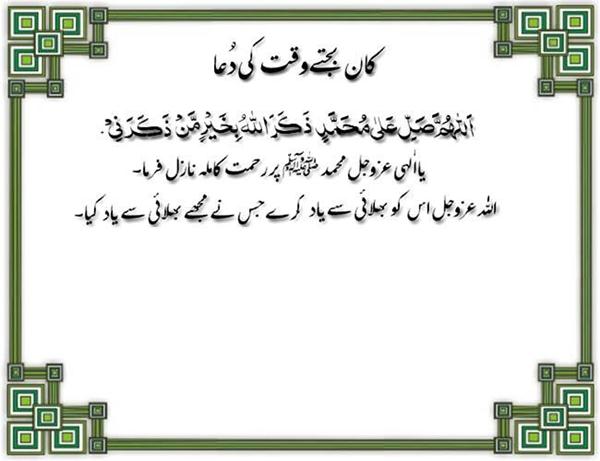 کان بجتے وقت کی دُعا
اَللّٰهُمَّ صَلِّ عَلٰى مُحَمَّدٍ ذَكَرَ اللّٰهُ بِخَيْرٍ مَّنْ ذَكَرَنِيْ.
یاالٰہی عزوجل محمد ﷺ پر رحمت کاملہ نازل فرما۔
اللہ عزوجل اس کو بھلائی سے یاد کرے جس نے مجھے بھلائی سے یاد کیا۔